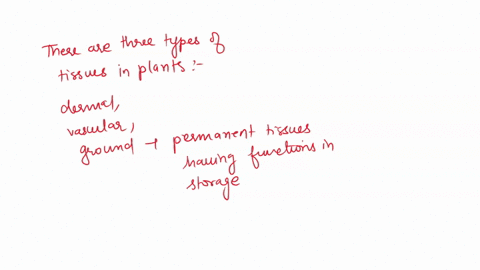 There are three types of
tissues in plants :-
dermal,
vascular,
ground → permanent tissues
having functions in
storage